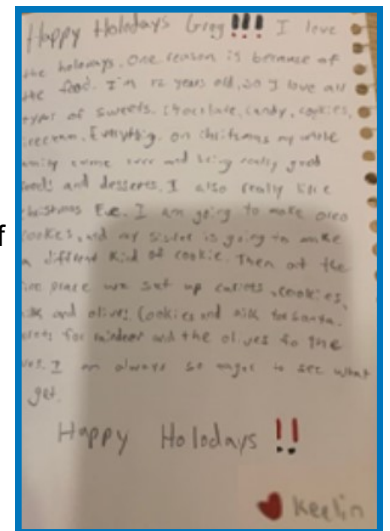 Happy Holodays Greg!!! I love
the holodays. One reason is because of
the food. I'm 12 years old, so I love all
types of sweets. Chocolate, candy, cookies,
icecream. Everything. On christmas my whole
family come over and bring really good
foods and desserts. I also really like
christmas Eve. I am going to make oreo
cookies, and my sister is going to make
a different kind of cookie. Then at the
fire place we set up carrots, cookies,
milk and olives. Cookies and milk for santa.
for raindeer and the olives fo the
I am always so eager to see what
get.
Happy Holodays !!
Keelin
f